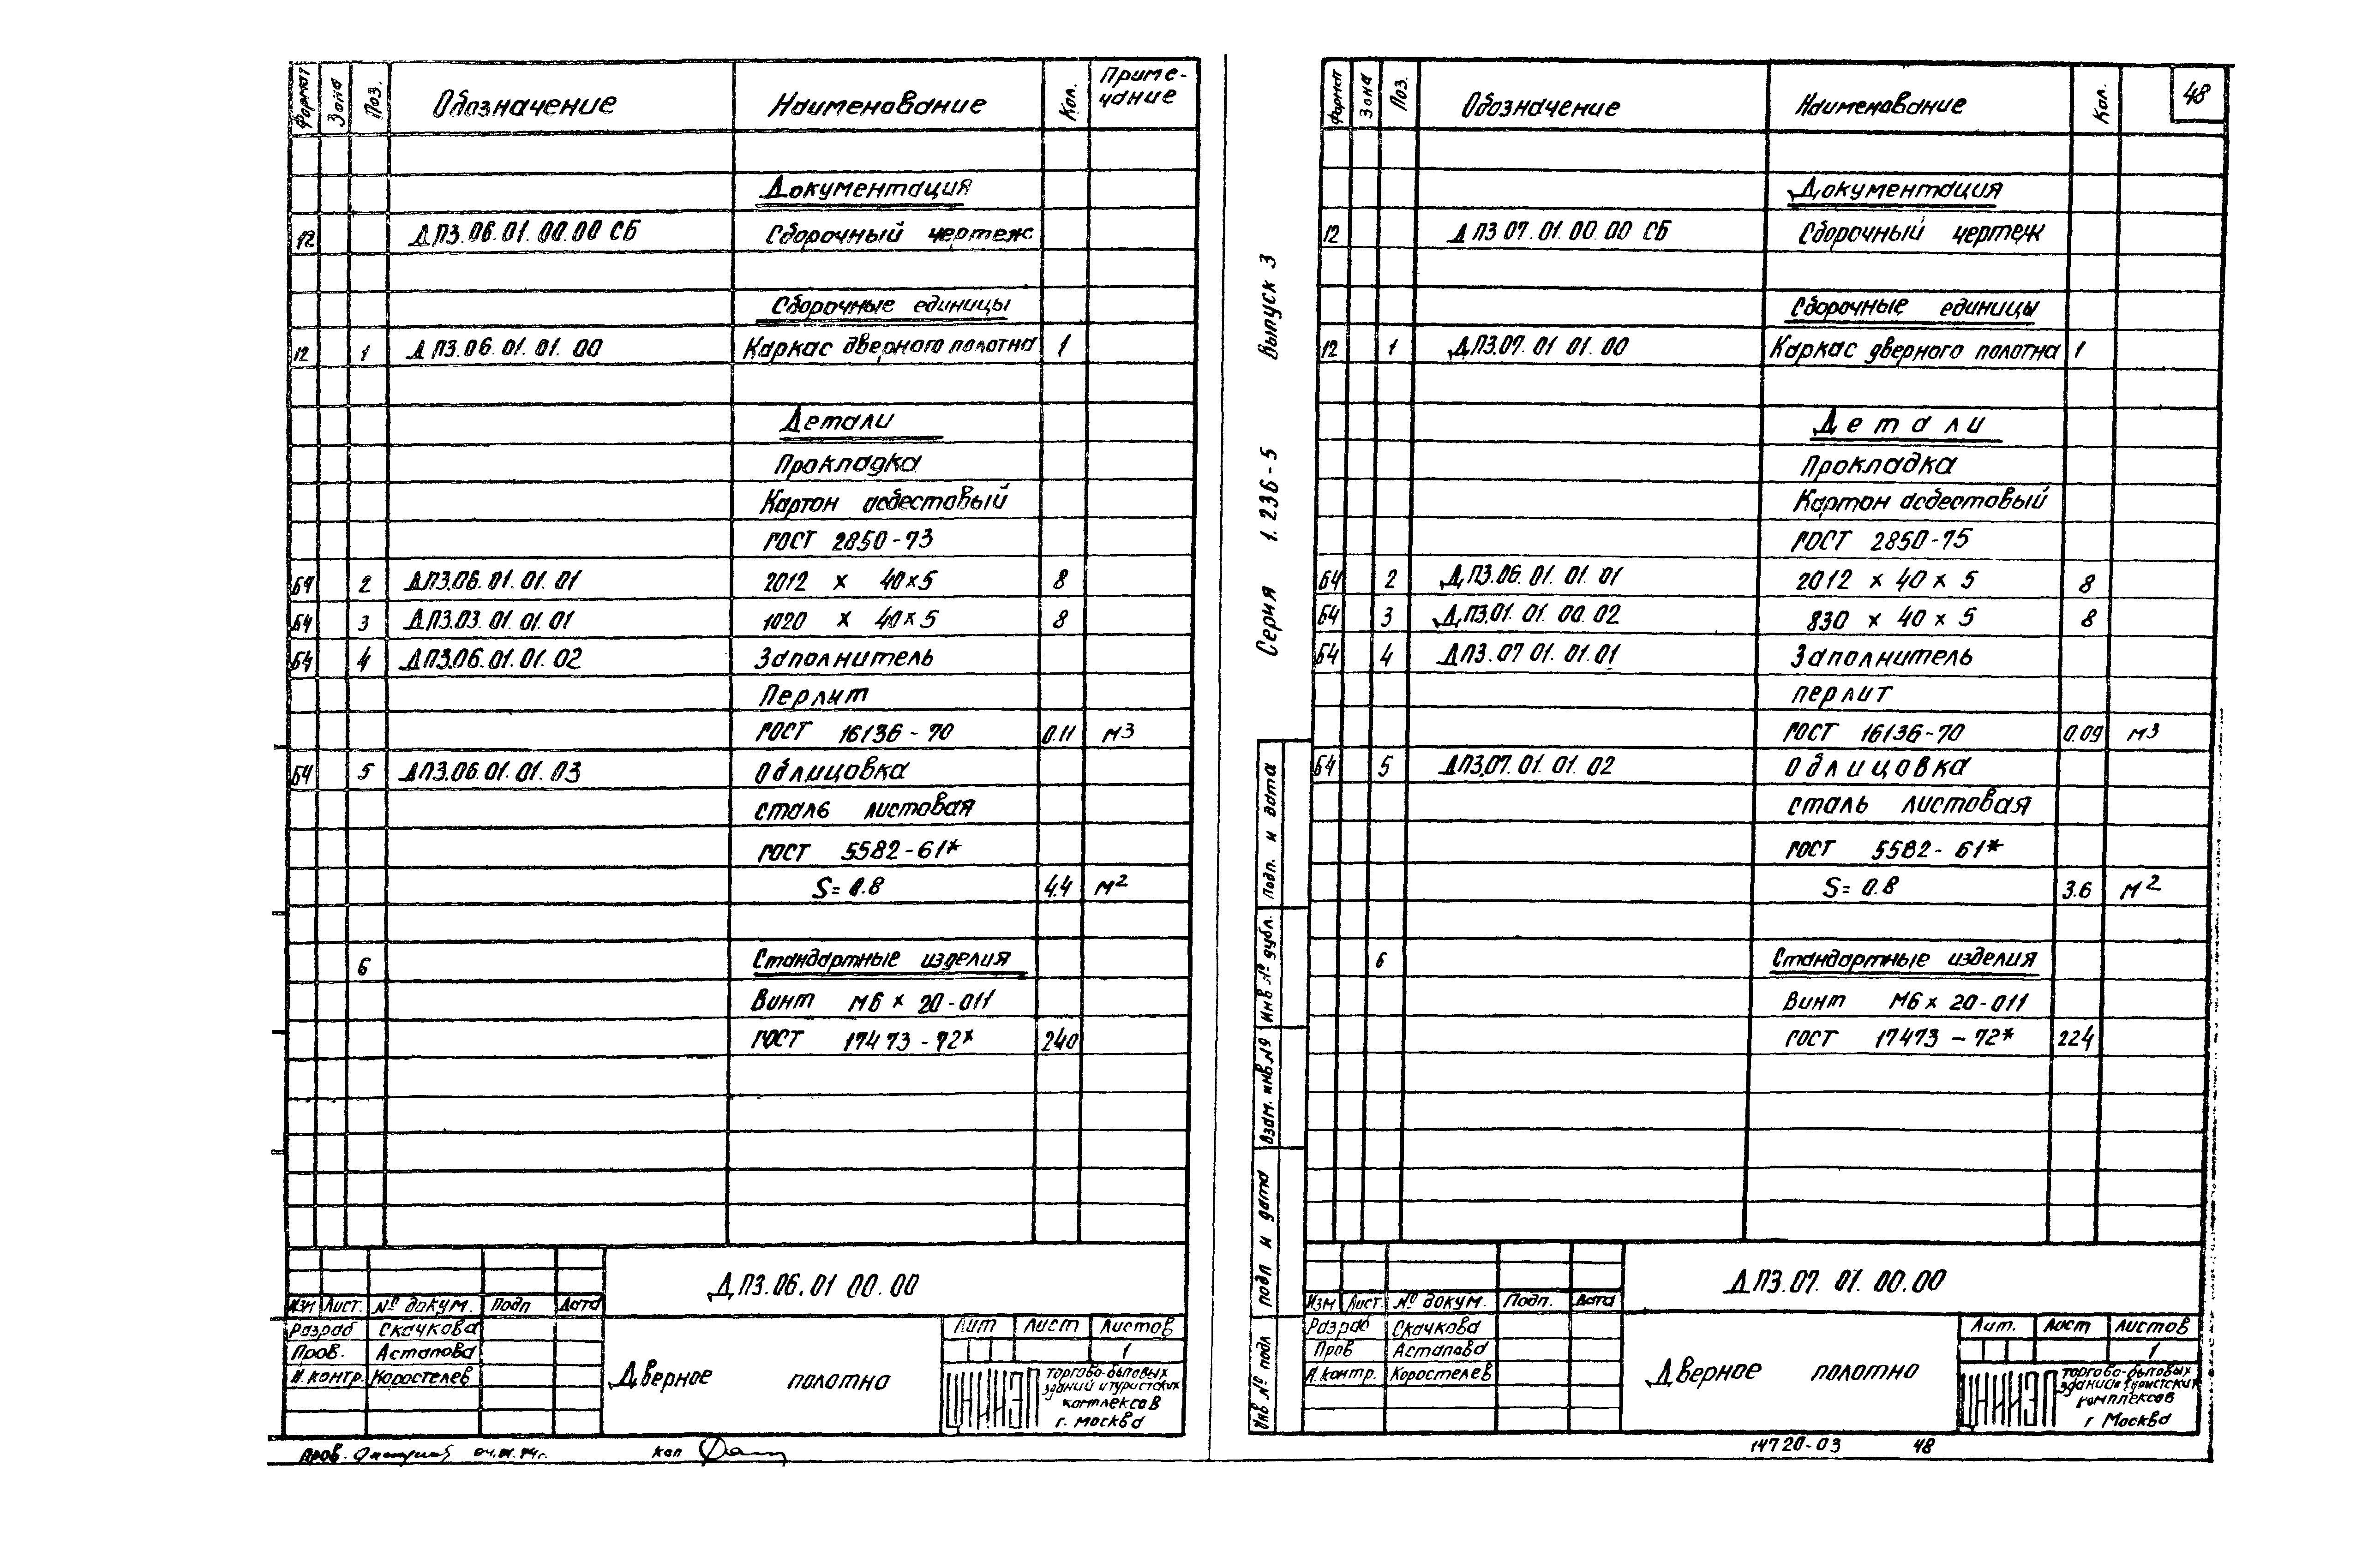 Формат Зона Поз. Обозначение Наименование Кол. Приме-
чание
Документация
12 ДПЗ.06.01.00.00 СБ Сборочный чертеж
Сборочные единицы
12 1 ДПЗ.06.01.01.00 Каркас дверного полотна 1
Детали
Прокладка
Картон асбестовый
ГОСТ 2850-73
БЧ 2 ДПЗ.06.01.01.01 2012 х 40х5 8
БЧ 3 ДПЗ.03.01.01.01 1020 х 40х5 8
БЧ 4 ДПЗ.06.01.01.02 Заполнитель
Перлит
ГОСТ 16136-70 0.11 м3
БЧ 5 ДПЗ.06.01.01.03 Облицовка
сталь листовая
ГОСТ 5582-61*
S=0.8 4.4 м2
6 Стандартные изделия
Винт М6 х 20-011
ГОСТ 17473-72* 240
ДПЗ.06.01 00.00
Изм Лист. № докум. Подп Дата
Разраб Скачкова
Пров. Астапова
Н.контр. Коростелев
Дверное полотно
Лит Лист Листов
1
ЦНИИЭП торгово-бытовых
зданий и туристских
комплексов
г. Москва
Пров. 04.01.74г. Коп
Серия 1.236-5 Выпуск 3
Формат Зона Поз. Обозначение Наименование Кол. 48
Документация
12 ДПЗ 07.01.00.00 СБ Сборочный чертеж
Сборочные единицы
12 1 ДПЗ.07.01 01.00 Каркас дверного полотна 1
Детали
Прокладка
Картон асбестовый
ГОСТ 2850-75
БЧ 2 ДПЗ.06.01.01.01 2012 х 40 х 5 8
БЧ 3 ДПЗ.01.01.00.02 830 х 40 х 5 8
БЧ 4 ДПЗ.07 01.01.01 Заполнитель
перлит
ГОСТ 16136-70 0.09 м3
БЧ 5 ДПЗ.07.01.01.02 Облицовка
сталь листовая
ГОСТ 5582-61*
S=0.8 3.6 м2
6 Стандартные изделия
Винт М6х 20-011
ГОСТ 17473-72* 224
Подп. и дата
Инв № дубл.
Взам. инв.№
подп и дата
Инв № подл
ДПЗ.07.01.00.00
Изм Лист. № докум. Подп. Дата
Разраб Скачкова
Пров Астапова
Н.контр. Коростелев
Дверное полотно
Лит. Лист Листов
1
ЦНИИЭП торгово-бытовых
зданий и туристских
комплексов
г Москва
14720-03 48